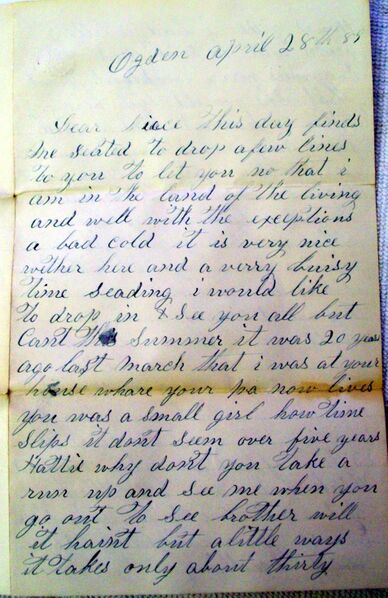 Ogden april 28th 85
Dear Niece this day finds
me seated to drop a few lines
to you to let you no that i
am in the land of the living
and well with the exceptions
a bad cold it is very nice
wether here and a verry buisy
time seading i would like
to drop in & see you all but
Cant this Summer it was 20 years
ago last march that i was at your
house whare your pa now lives
you was a small girl how time
slips it dont seem over five years
Hattie why dont you take a
run up and see me when you
go out to see brother will
it haint but a little ways
it takes only about thirty